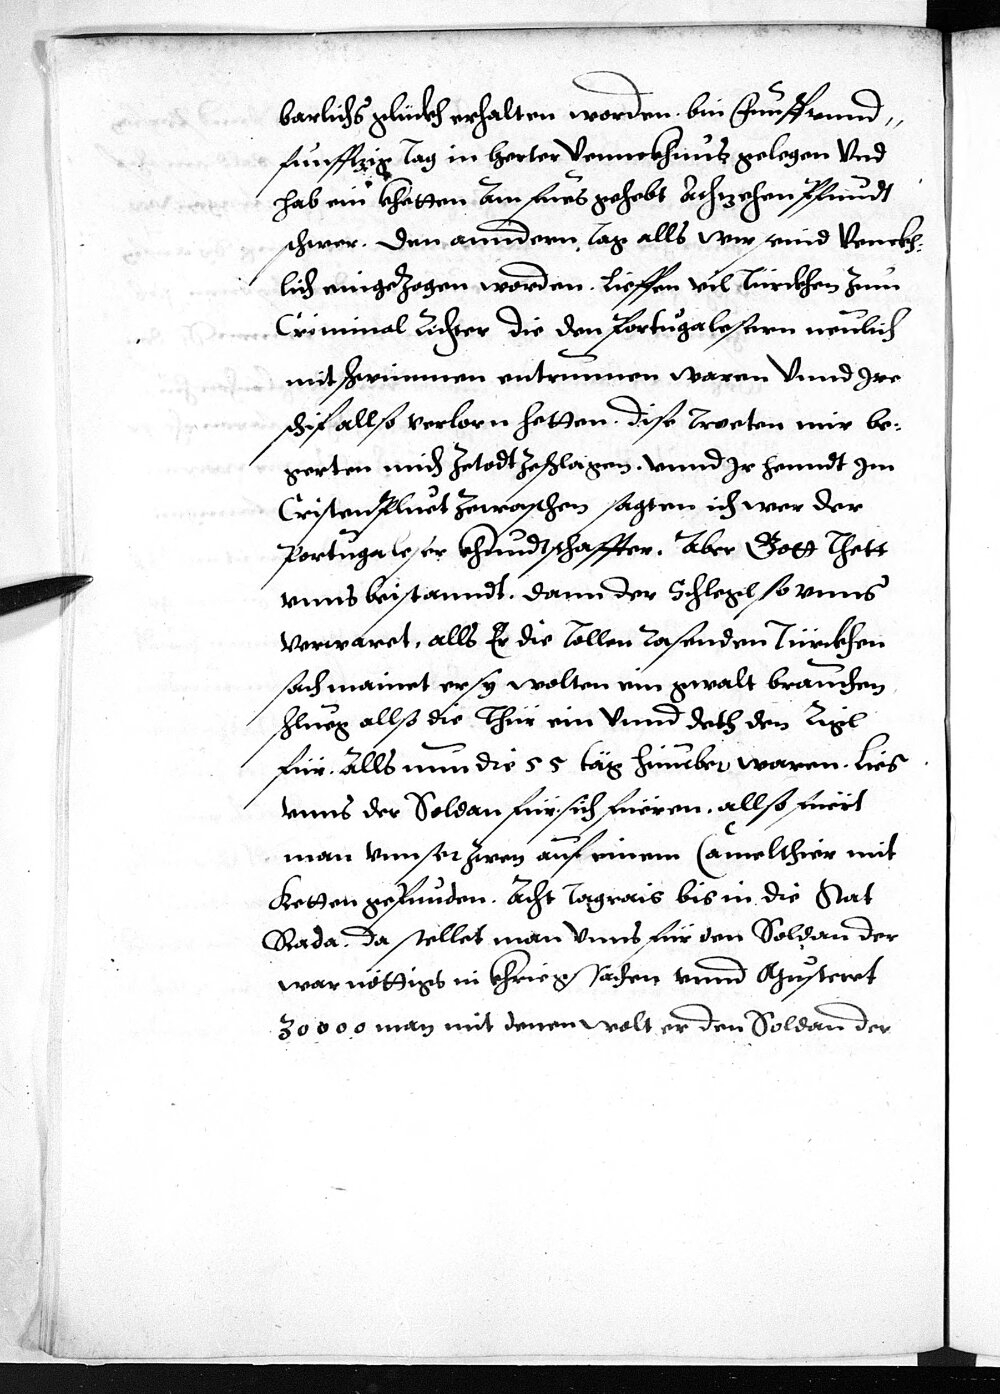 barlichs glückh erhalten worden. bin Fünff vnnd
fünfftzig Tag in herter Vennckhnus gelegen Vnd
hab ein khetten Am fues gehebt Achtzehen Pfundt
schwer. Den anndern tag alls wir sind Venckh-
lich eingezogen worden. lieffen vil Türckhen zum
Criminal Richter die den Portugalesern neulich
mit schwimmen entrunnen waren Vnnd Ire
schif allso verlorn hetten. Dise Tretten mir be-
gerten mich zetodt zeschlagen. vnnd Ir henndt Im
Cristen Pluet zewaschen sagten ich wer der
Portugaleser khundtschaffter. Aber Gott Thett
vnns beistanndt. dann der Schlegl so vnns
verwaret. alls Er die Tollen Rasenden Türckhen
sach mainet er sy wolten ein gwalt brauchen
schlueg allso die Thür ein Vnnd deth den Rigl
für. Alls nun die 55 täg hinüber waren. Lies
vnns der Soldan für sich füeren. allso füert
man vnnser zwen auf einem Camelthier mit
Ketten gepunden. Acht Tagrais bis in die Stat
Rada. Da stellet man Vnns für den Soldan der
war nöttigs in khriegs sachen vnnd Musteret
30000 man mit denen wolt er den Soldan der